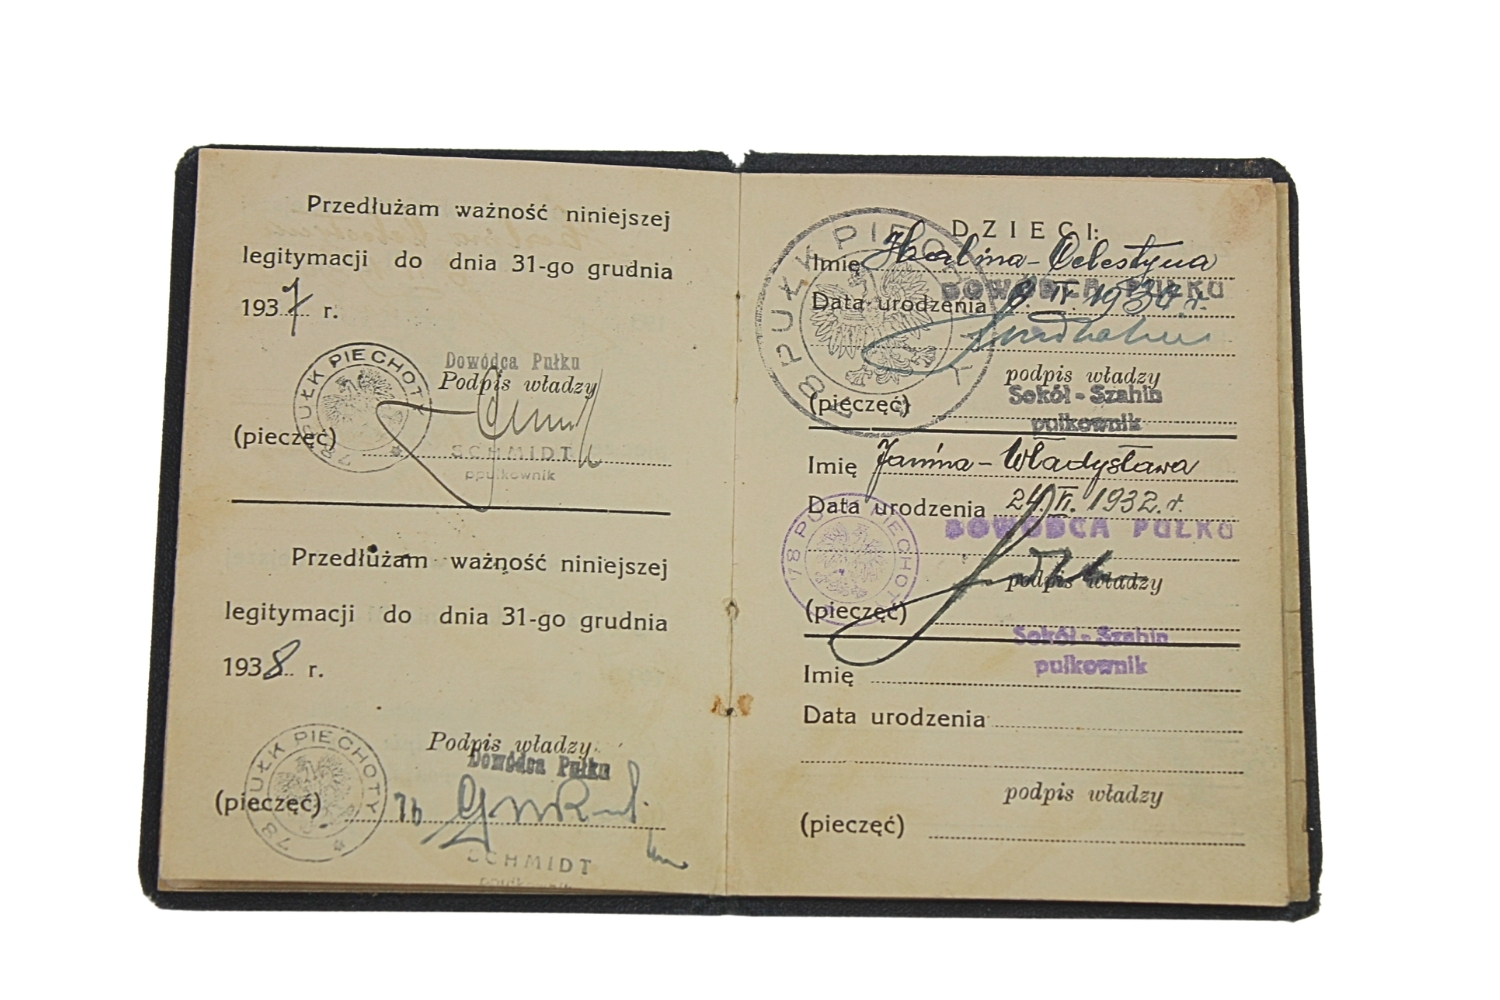 Przedłużam ważność niniejszej
legitymacji do dnia 31-go grudnia
1937 r.
78 PUŁK PIECHOTY
Dowódca Pułku
Podpis władzy
(pieczęć)
SCHMIDT
ppułkownik
Przedłużam ważność niniejszej
legitymacji do dnia 31-go grudnia
1938 r.
78 PUŁK PIECHOTY
Podpis władzy
Dowódca Pułku
(pieczęć)
SCHMIDT
ppułkownik
DZIECI:
Imię Halina-Celestyna
DOWÓDCA PUŁKU
Data urodzenia IV. 1930 r.
podpis władzy
Sokół-Szahin
(pieczęć)
pułkownik
Imię Janina-Władysława
Data urodzenia 24.VI. 1932. r.
DOWÓDCA PUŁKU
78 PUŁK PIECHOTY
podpis władzy
(pieczęć)
Sokół-Szahin
pułkownik
Imię
Data urodzenia
podpis władzy
(pieczęć)